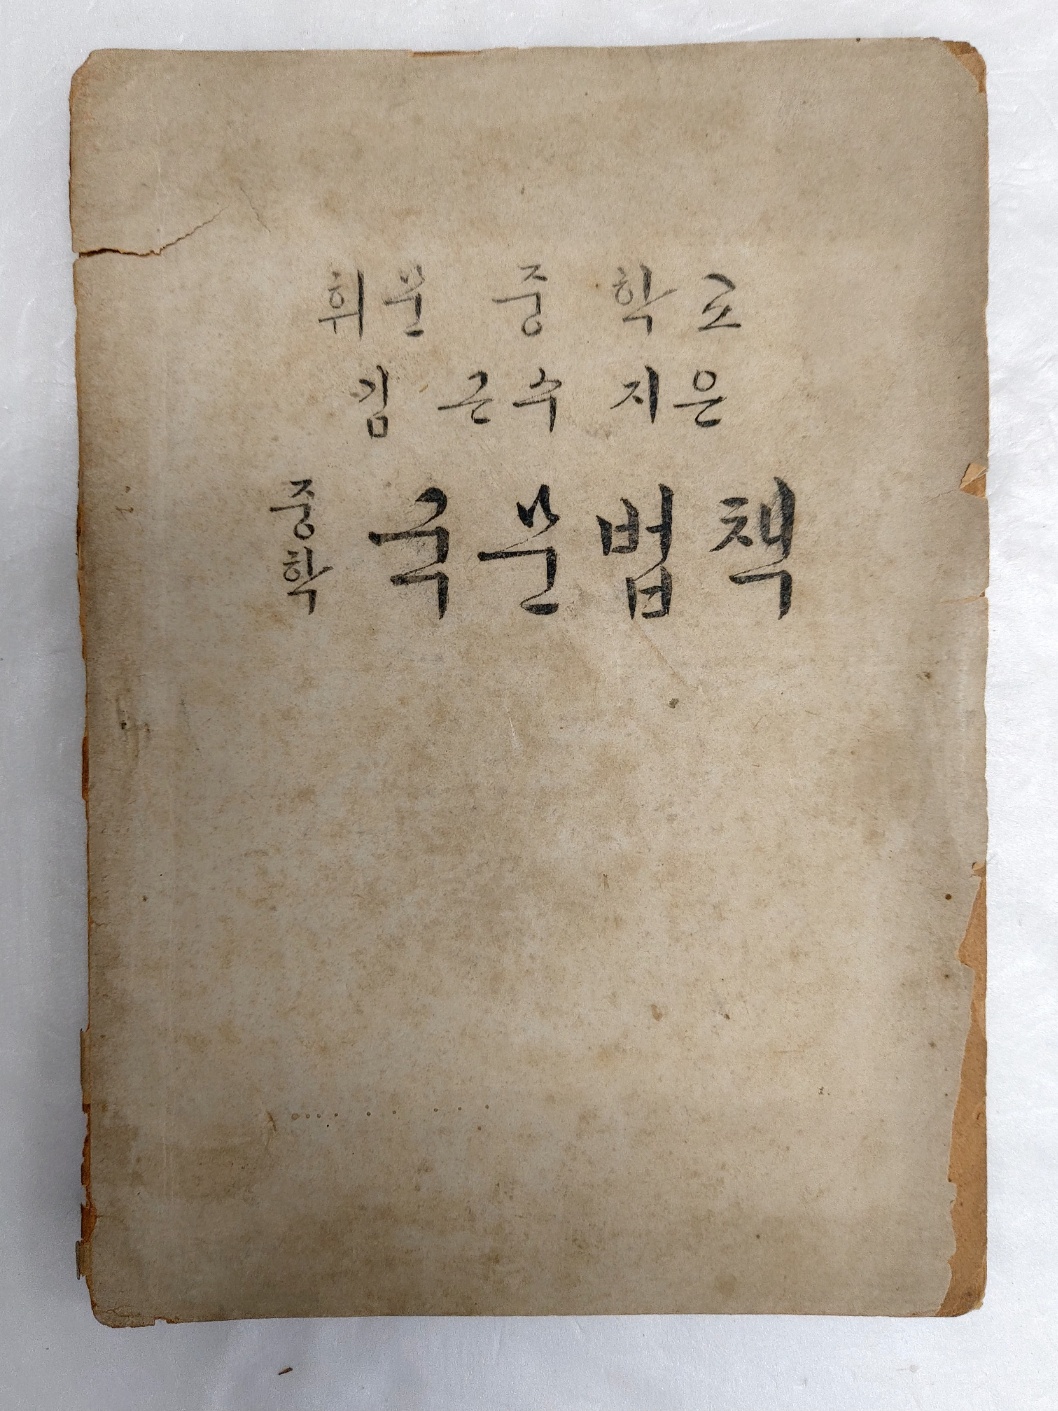 휘문 중학교
김근수 지은
중학 국문법책